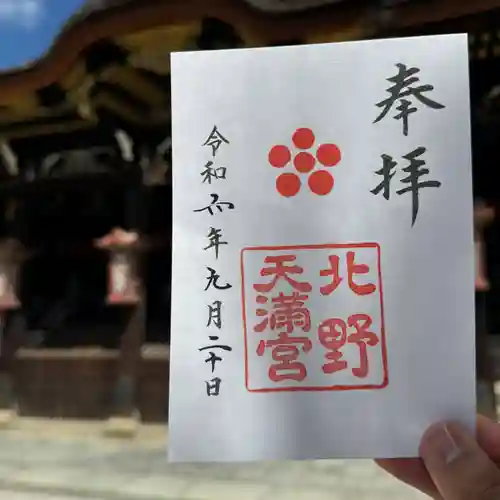 奉拝
北野
天満宮
令和 年九月二十日